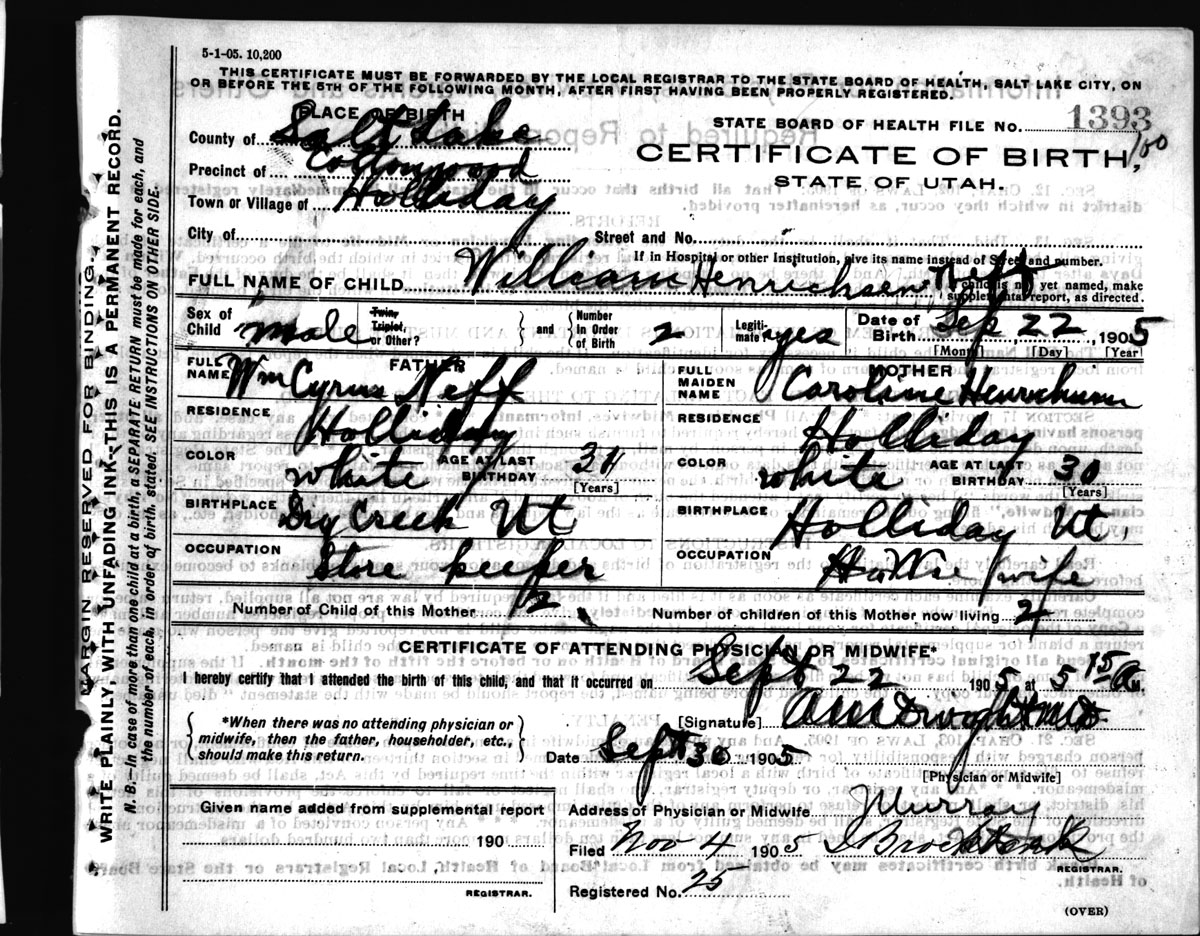 5-1-05. 10,200
THIS CERTIFICATE MUST BE FORWARDED BY THE LOCAL REGISTRAR TO THE STATE BOARD OF HEALTH, SALT LAKE CITY, ON
OR BEFORE THE 5TH OF THE FOLLOWING MONTH, AFTER FIRST HAVING BEEN PROPERLY REGISTERED.
PLACE OF BIRTH
County of Salt Lake
Precinct of Cottonwood
Town or Village of Holliday
STATE BOARD OF HEALTH FILE NO. 1393
CERTIFICATE OF BIRTH,
STATE OF UTAH.
City of Street and No.
If in Hospital or other Institution, give its name instead of Street and number.
FULL NAME OF CHILD William Henrichsen Neff
If child is not yet named, make
supplemental report, as directed.
Sex of Child male Twin, Triplet, or Other? and Number in Order of Birth 2 Legiti-mate yes Date of Birth Sep 22, 1905
[Month] [Day] [Year]
FATHER
FULL NAME Wm Cyrus Neff
RESIDENCE Holliday
COLOR white AGE AT LAST BIRTHDAY
[Years]
BIRTHPLACE Dry Creek Ut
OCCUPATION Store keeper
MOTHER
FULL MAIDEN NAME Caroline Henrichsen
RESIDENCE Holliday
COLOR white AGE AT LAST BIRTHDAY 30
[Years]
BIRTHPLACE Holliday Ut.
OCCUPATION wife
Number of Child of this Mother 2 Number of children of this Mother now living 2
CERTIFICATE OF ATTENDING PHYSICIAN OR MIDWIFE*
I hereby certify that I attended the birth of this child, and that it occurred on Sept 22 1905 at 5 15 a.
*When there was no attending physician or
midwife, then the father, householder, etc.,
should make this return.
[Signature]
Date Sept 30 1905
[Physician or Midwife]
Given name added from supplemental report
190
REGISTRAR.
Address of Physician or Midwife Murray
Filed Nov 4 1905
REGISTRAR.
Registered No. 25
(OVER)
MARGIN RESERVED FOR BINDING.
WRITE PLAINLY, WITH UNFADING INK—THIS IS A PERMANENT RECORD.
N. B.—In case of more than one child at a birth, a SEPARATE RETURN must be made for each, and
the number of each, in order of birth, stated. SEE INSTRUCTIONS ON OTHER SIDE.